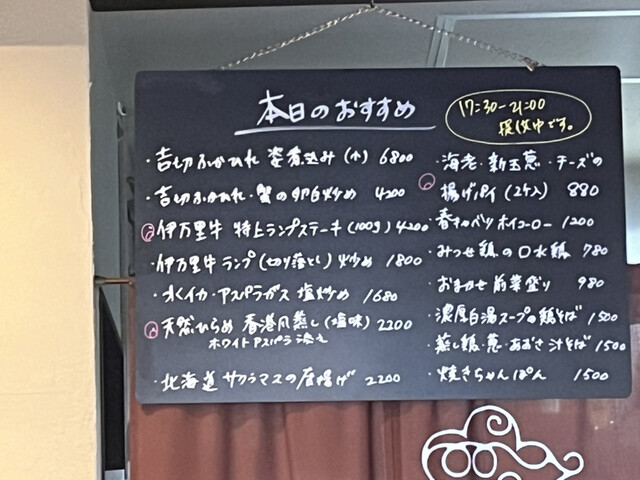 本日のおすすめ
17:30-21:00
提供中です。
・吉切ふかひれ 姿煮込み (小) 6800
・吉切ふかひれ・蟹の卵白炒め 4200
・伊万里牛 特上ランプステーキ (100g) 4200
・伊万里牛ランプ (切り落とし) 炒め 1800
・水イカ・アスパラガス 塩炒め 1680
・天然ひらめ 香港風蒸し (塩味) 2200
ホワイトアスパラ添え
・北海道 サクラマスの唐揚げ 2200
・海老・新玉葱・チーズの
揚げパイ (2ケ入) 880
・春キャベツ ホイコーロー 1200
・みつせ鶏の口水鶏 780
・おまかせ前菜盛り 980
・濃厚白湯スープの鶏そば 1500
・蒸し鶏・葱・あおさ汁そば 1500
・焼きちゃんぽん 1500